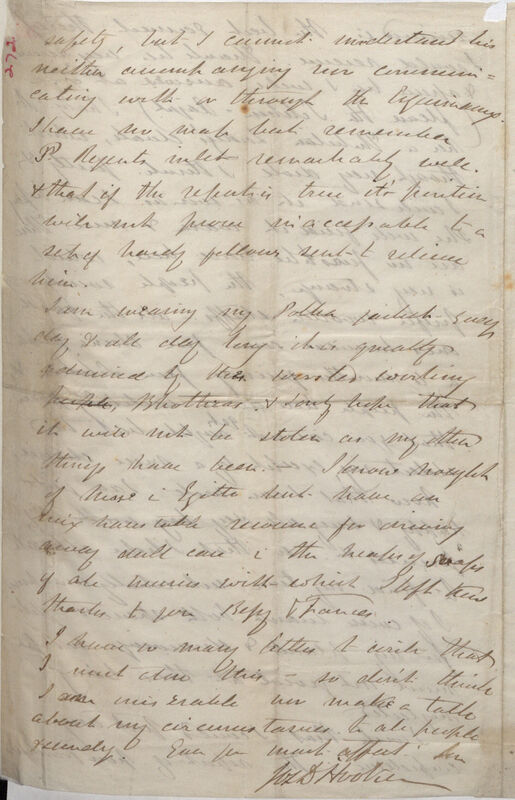 272.
safety, but I cannot understand his
neither accompanying nor communi=
cating with or through the Esquimaux.
I have no map but remember
P. Regents inlet remarkably well.
& that if the report is true it's position
will not prove inaccessible to a
set of hardy fellows sent to relieve
him.
I am wearing my Polka jacket every
day & all day long it is greatly
admired by these worsted working
people, Bhotheas. & I only hope that
it will not be stolen as my other
things have been. I know nought
of Mose in Egitto but have an
recourse for driving
away dull care in the heaps of scraps
of all musics with which I left
thanks to you Bessy & Frances
I have so many letters to write that
I must close this so don't think
I am miserable nor make a talk
about my circumstances to all people
& sundry. Ever your most affect Son
Jos D Hooker